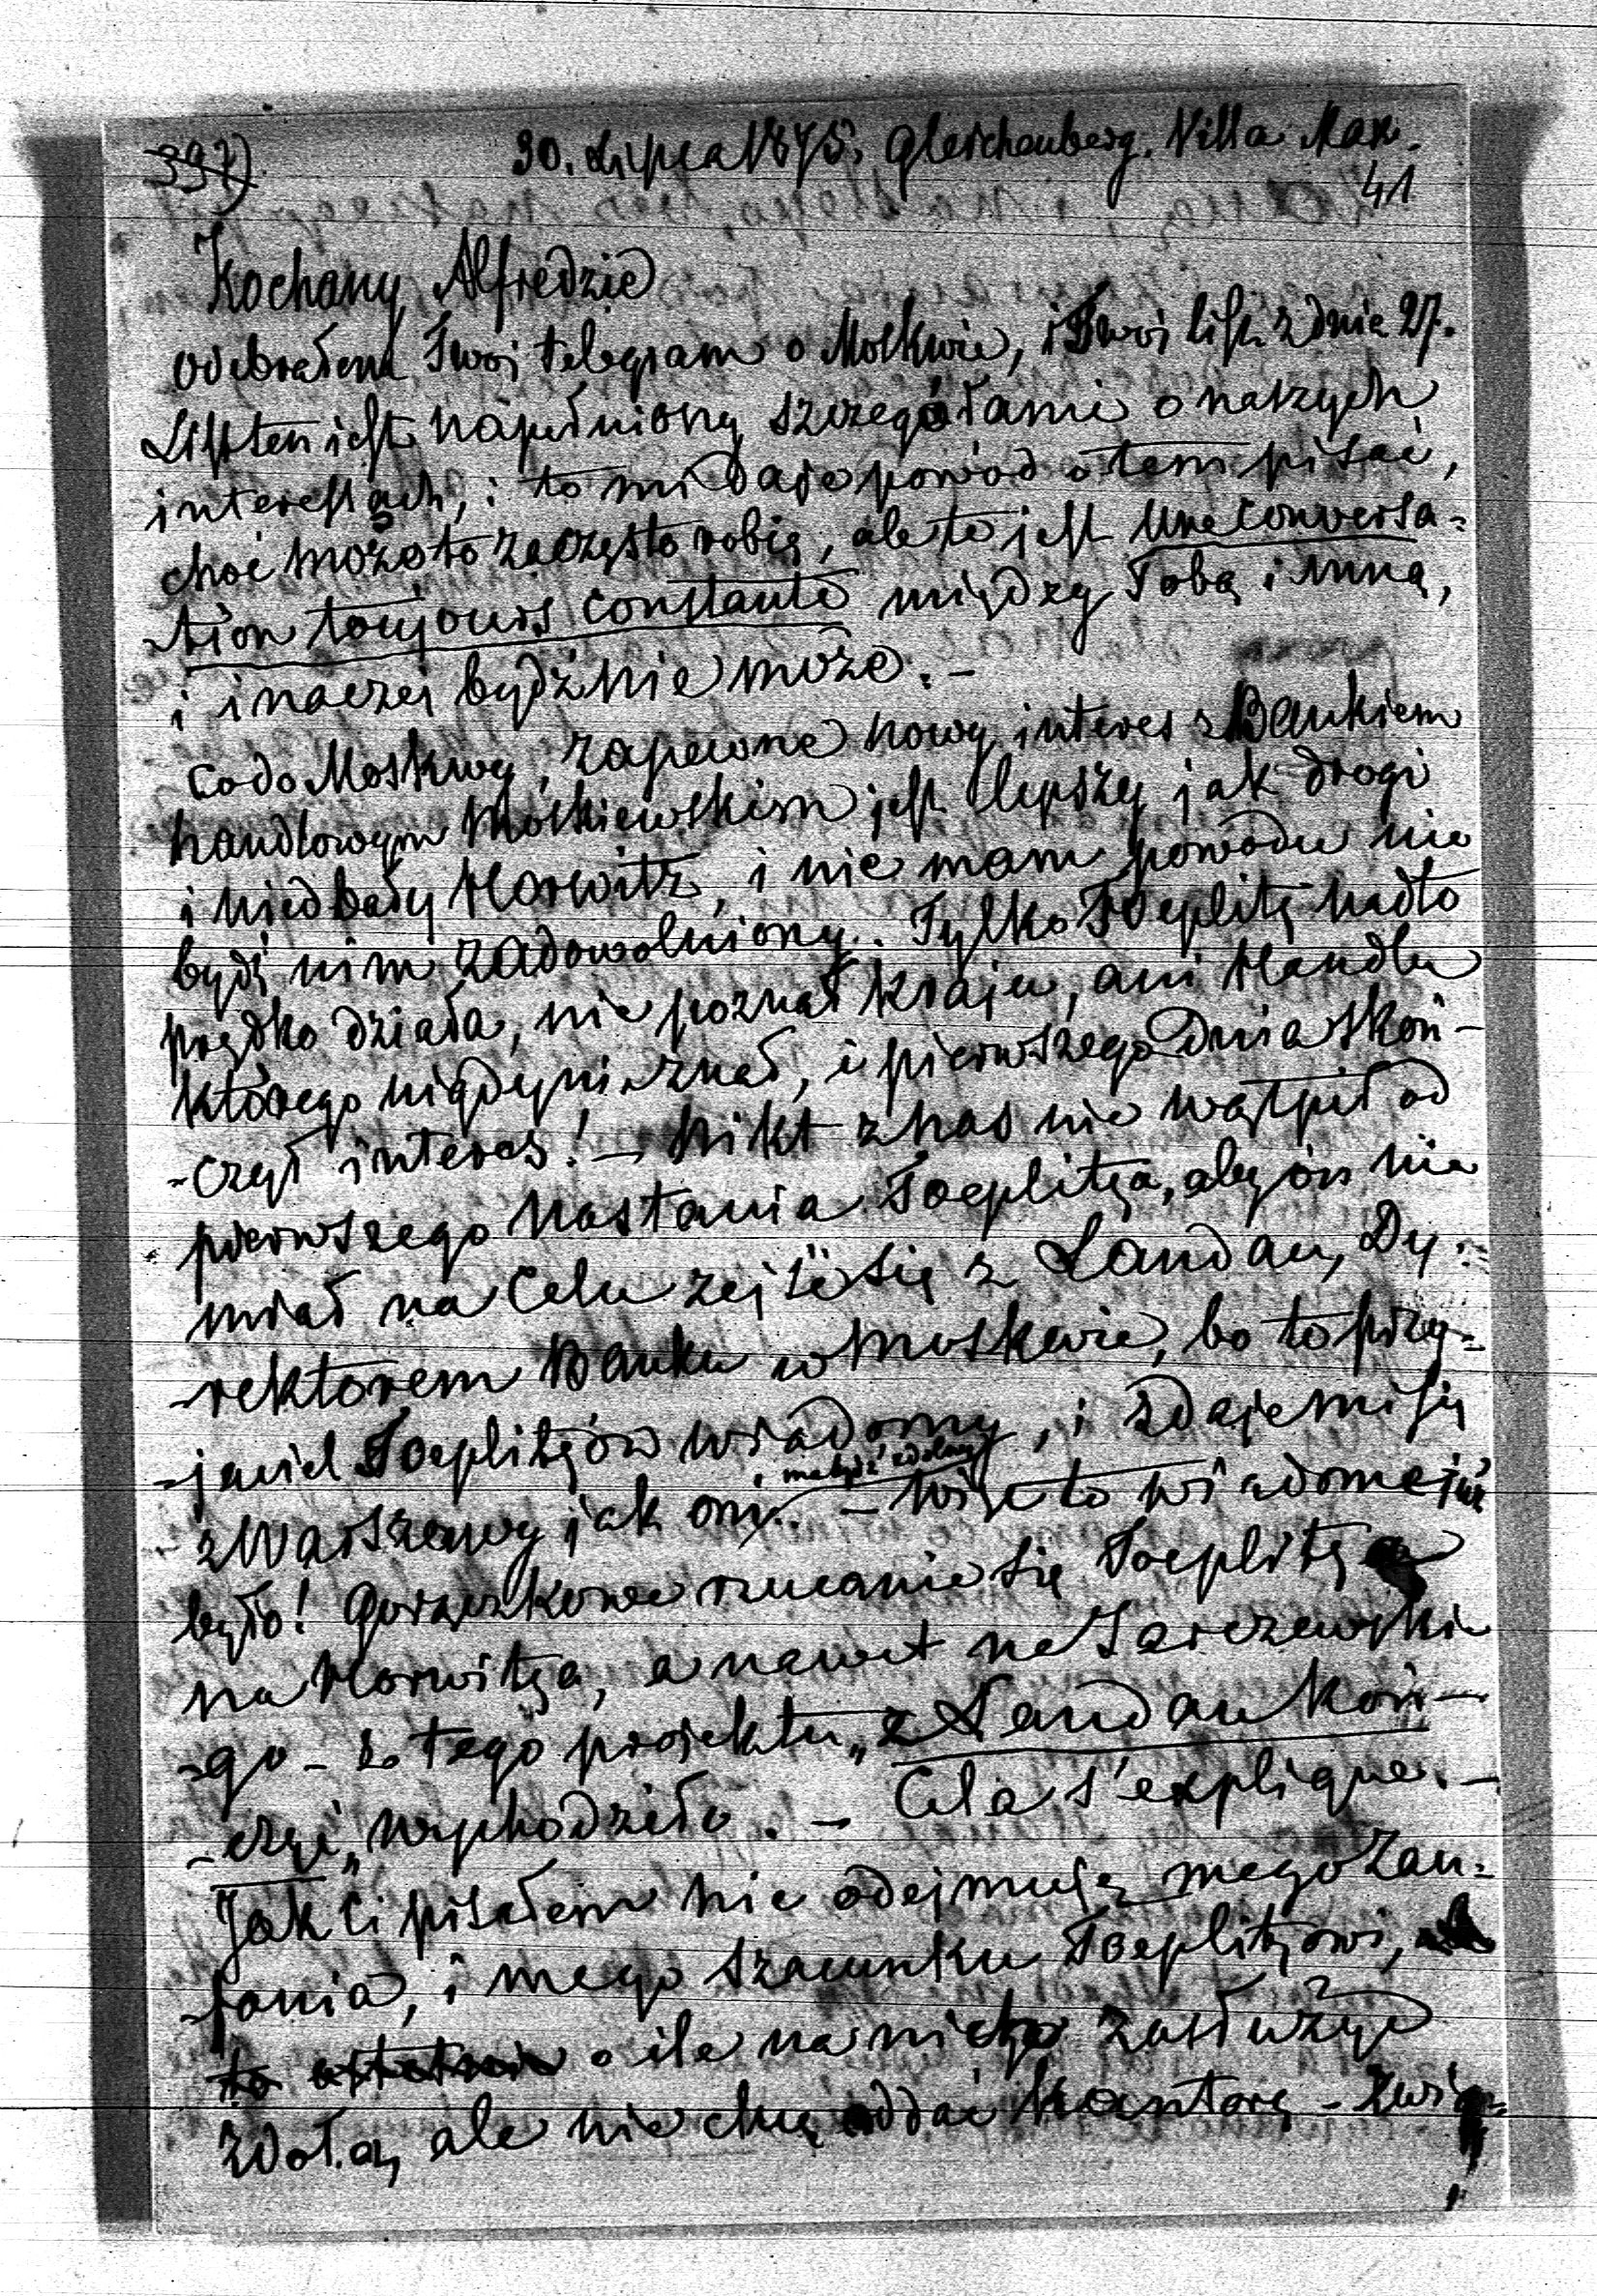 397) 30. Lipca 1875, Gleichenberg. Villa Max.
41
Kochany Alfredzie
odebrałem Twój telegram o Moskwie, i Twój list z dnia 27.
List ten jest napełniony szczegółami o naszych
interessach, i to mi daje powód o tem pisać,
choć może to za często robię, ale to jest une conversa-
tion toujours constante między Tobą i mną,
i inaczej bydź nie może. -
Co do Moskwy, zapewne nowy interes z Bankiem
handlowym Moskiewskim jest lepszy jak drogi
i niedbały Horwitz, i nie mam powodu nie
bydź nim zadowolniony. Tylko Toeplitz nadto
prędko działa, nie poznał kraju, ani Handlu
którego nigdy nie znał, i pierwszego dnia skoń-
-czył interes! - Nikt z nas nie wątpił od
pierwszego nastania Toeplitza, aby on nie
miał na celu zejść się z Landau, Dy-
-rektorem Banku w Moskwie, bo to przy-
-jaciel Toeplitzów wiadomy, i zdaje mi się
z Warszawy jak oni. - Więc to wiadome już
było! Gorączkowe rzucanie się Toeplitza
na Horwitza, a nawet na Jarczewskie
-go - z tego projektu „z Landau koń-
-czyć„ wychodziło. - Cela s'explique. -
Jak Ci pisałem nie odejmuję mego zau-
-fania, i mego szacunku Toeplitzowi,
to ostatnie o ile na niego zasłużyć
zdoła, ale nie chcę oddać Kantoru -